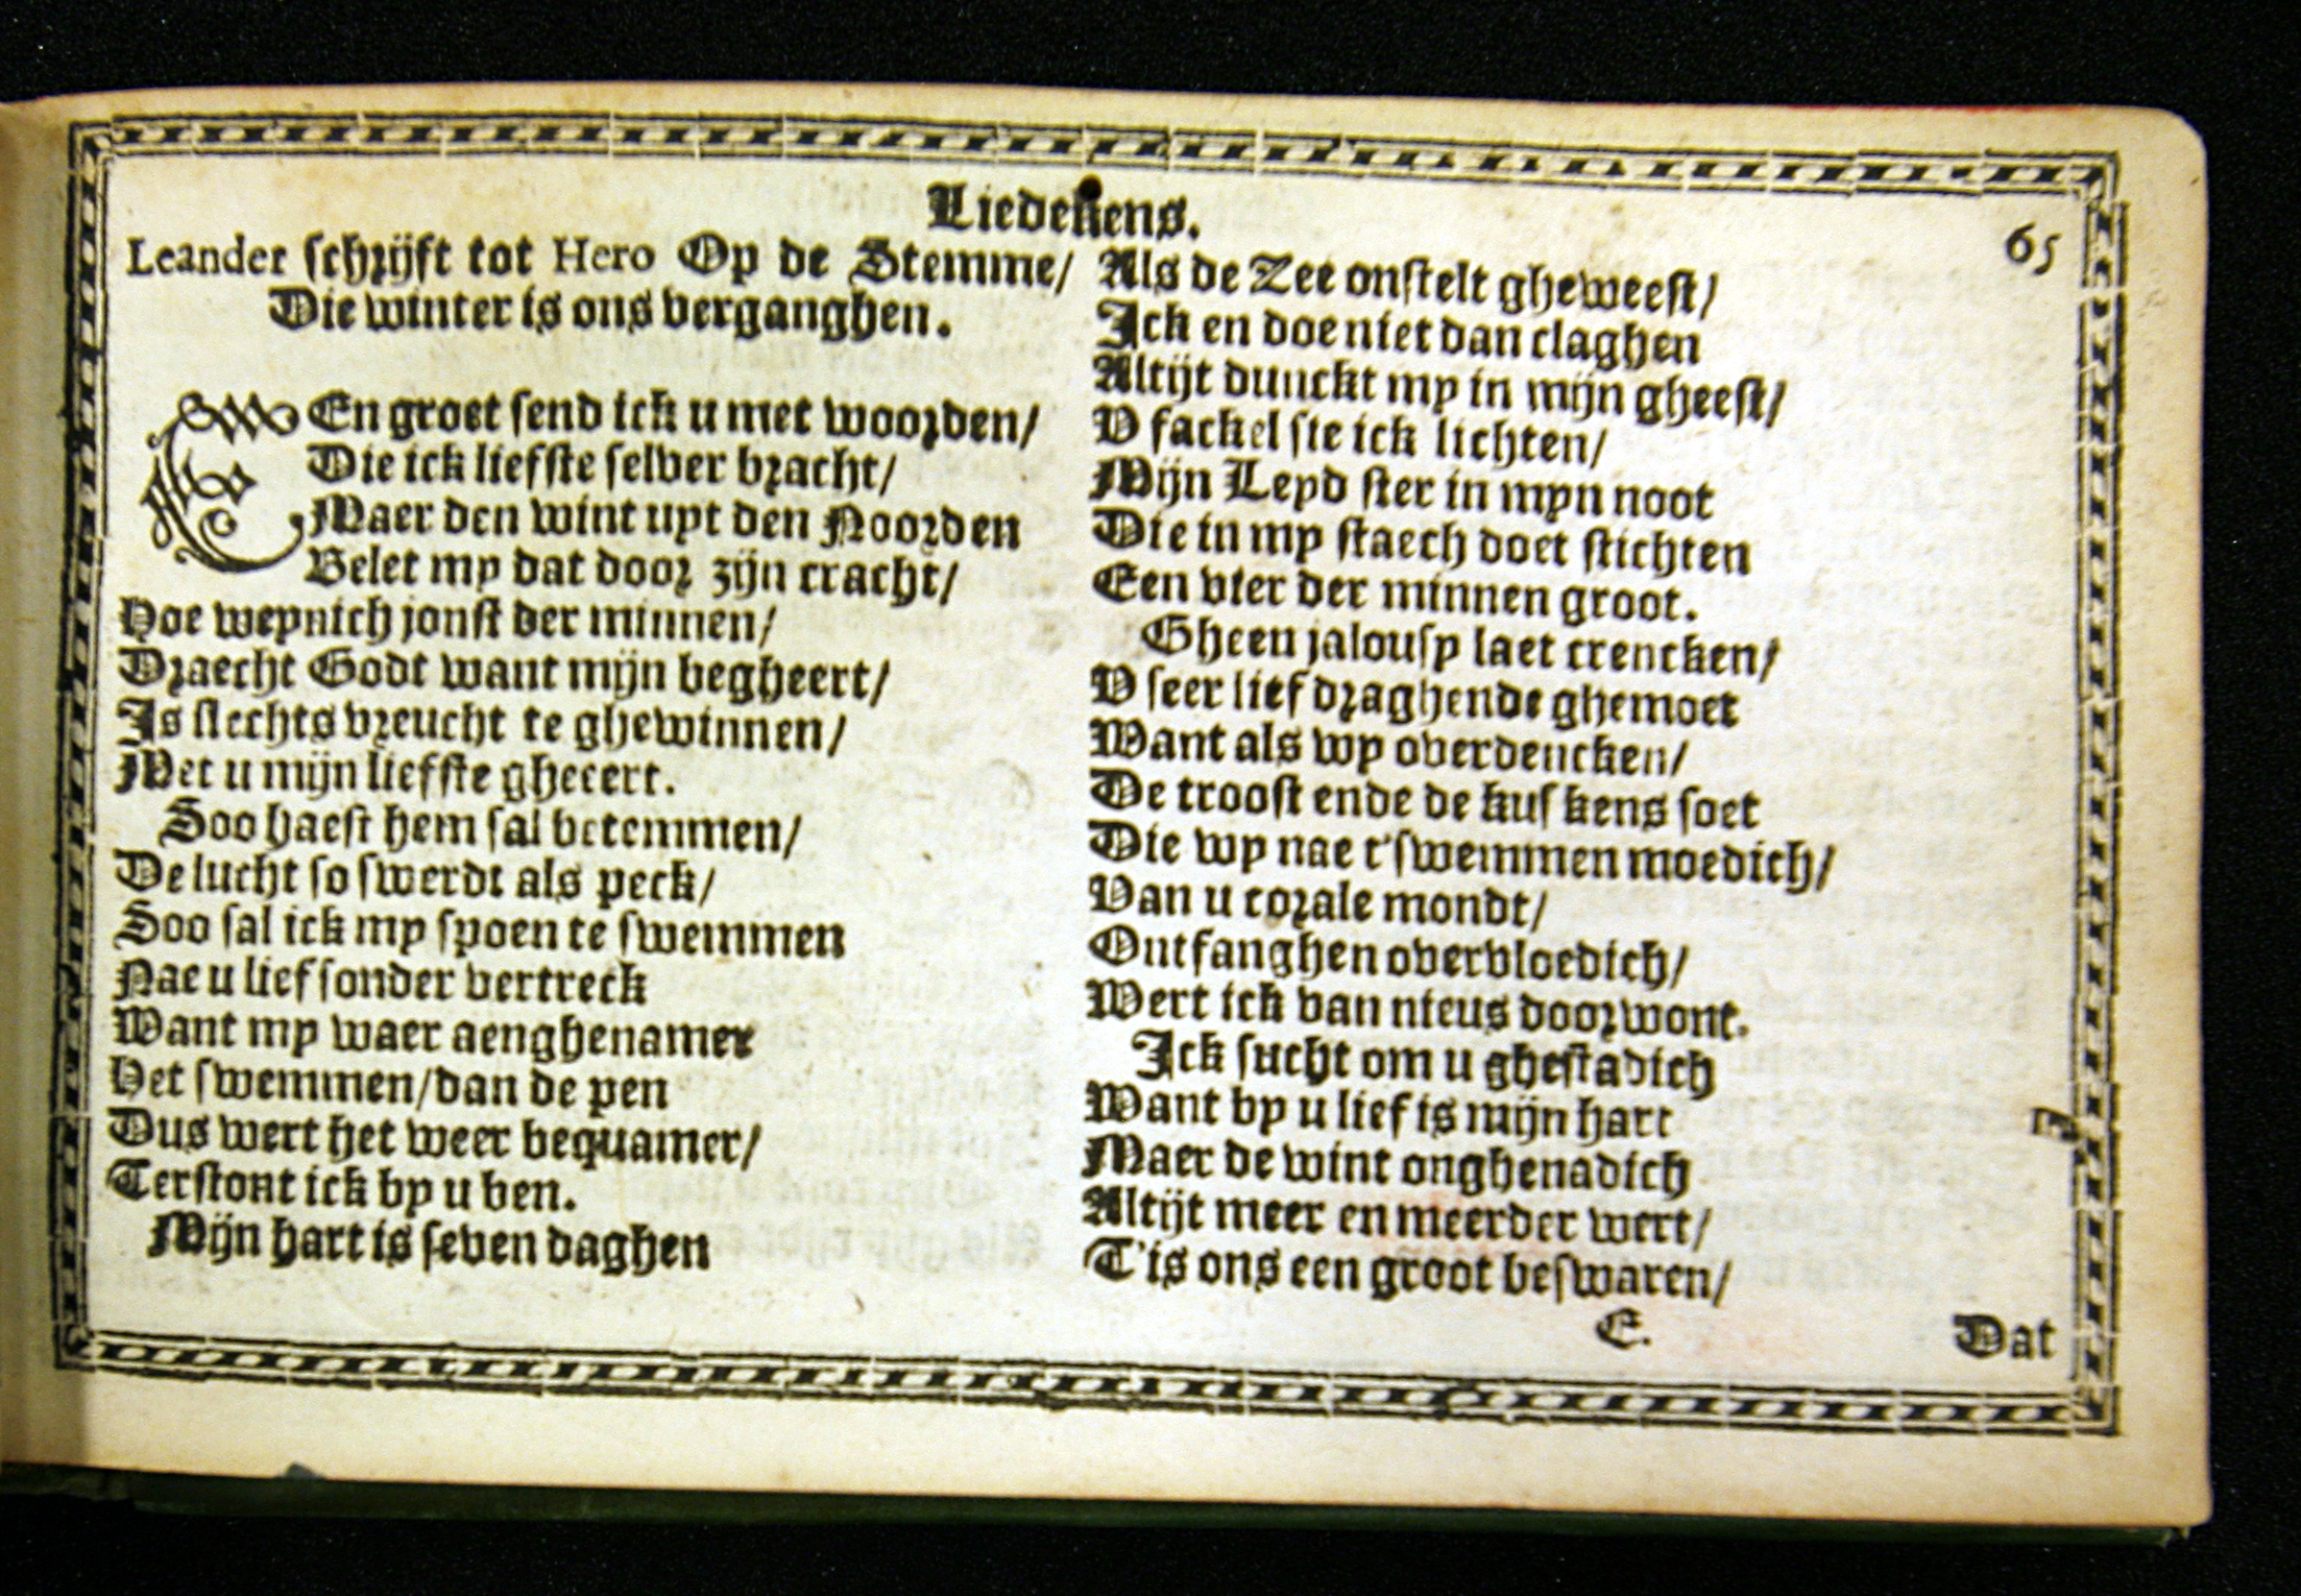 Liedekens.
65
Leander schrijft tot Hero Op de Stemme/
Die winter is ons verganghen.
EEn groet send ick u met woorden/
Die ick liefste selver bracht/
Maer den wint uyt den Noorden
Belet my dat door zijn cracht/
Hoe weynich jonst der minnen/
Draecht Godt want mijn begheert/
Is slechts vreucht te ghewinnen/
Met u mijn liefste gheeert.
Soo haest hem sal betemmen/
De lucht so swerdt als peck/
Soo sal ick my spoen te swemmen
Nae u lief sonder vertreck
Want my waer aenghenamer
Het swemmen/dan de pen
Dus wert het weer bequamer/
Terstont ick by u ben.
Mijn hart is seven daghen
Als de Zee onstelt gheweest/
Ick en doe niet dan claghen
Altijt dunckt my in mijn gheest/
V fackel sie ick lichten/
Mijn Leyd ster in myn noot
Die in my staech doet stichten
Een vier der minnen groot.
Gheen jalousy laet crencken/
V seer lief draghende ghemoet
Want als wy overdencken/
De troost ende de kus kens soet
Die wy nae t'swemmen moedich/
Van u corale mondt/
Ontfanghen overvloedich/
Wert ick van nieus doorwont.
Ick sucht om u ghestadich
Want by u lief is mijn hart
Maer de wint onghenadich
Altijt meer en meerder wert/
T'is ons een groot beswaren/
E.
Dat